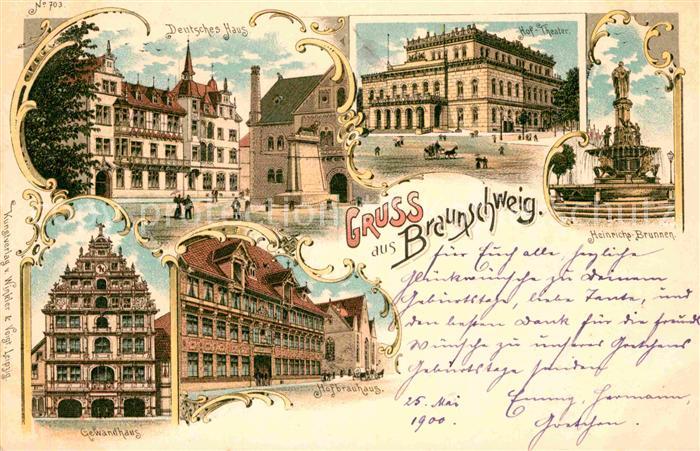 No. 703.
Deutsches Haus
Hof-Theater.
Heinrichs-Brunnen.
Gruss
aus Braunschweig.
Gewandhaus
Hofbräuhaus.
Kunstverlag v. Winkler & Voigt, Leipzig
für Euch alle, herzliche
Glückwünsche zu Deinem
Geburtstage, liebe Tante, und
den besten Dank für die freundl
wünsche zu unseres Gretchens
Geburtstage senden
25. Mai
1900.
Emmy, Hermann,
Gretchen.